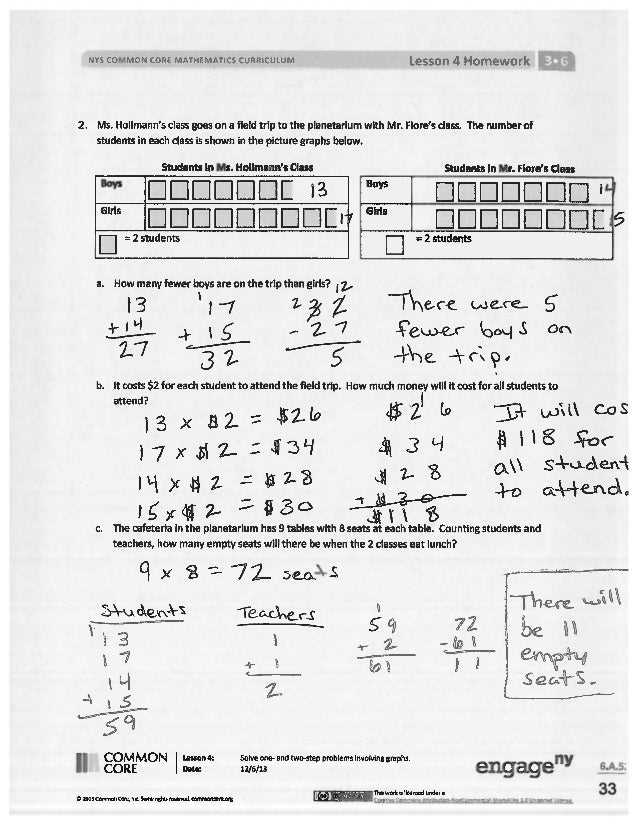 NYS COMMON CORE MATHEMATICS CURRICULUM Lesson 4 Homework 3•6
2. Ms. Hollmann's class goes on a field trip to the planetarium with Mr. Fiore's class. The number of
students in each class is shown in the picture graphs below.
Students in Ms. Hollmann's Class
Boys 13
Girls 17
= 2 students
Students in Mr. Fiore's Class
Boys 14
Girls 15
= 2 students
a. How many fewer boys are on the trip than girls?
13
+ 14
27
1
17
+ 15
32
2 12
32
- 27
5
There were 5
fewer boys on
the trip.
b. It costs $2 for each student to attend the field trip. How much money will it cost for all students to
attend?
13 x $2 = $26
17 x $2 = $34
14 x $2 = $28
15 x $2 = $30
1
$26
$34
$28
+ $30
$118
It will cos
$118 for
all student
to attend.
c. The cafeteria in the planetarium has 9 tables with 8 seats at each table. Counting students and
teachers, how many empty seats will there be when the 2 classes eat lunch?
9 x 8 = 72 seats
Students
1
13
17
14
+ 15
59
Teachers
1
+ 1
2
1
59
+ 2
61
72
- 61
11
There will
be 11
empty
seats.
COMMON
CORE
Lesson 4: Solve one- and two-step problems involving graphs.
Date: 12/6/13
engageny
6.A.5
33
© 2013 Common Core, Inc. Some rights reserved. commoncore.org
This work is licensed under a
Creative Commons Attribution-NonCommercial-ShareAlike 3.0 Unported License.